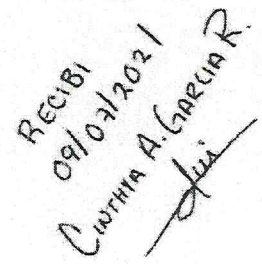 RECIBI
09/07/2021
CINTHYA A. GARCIA R.